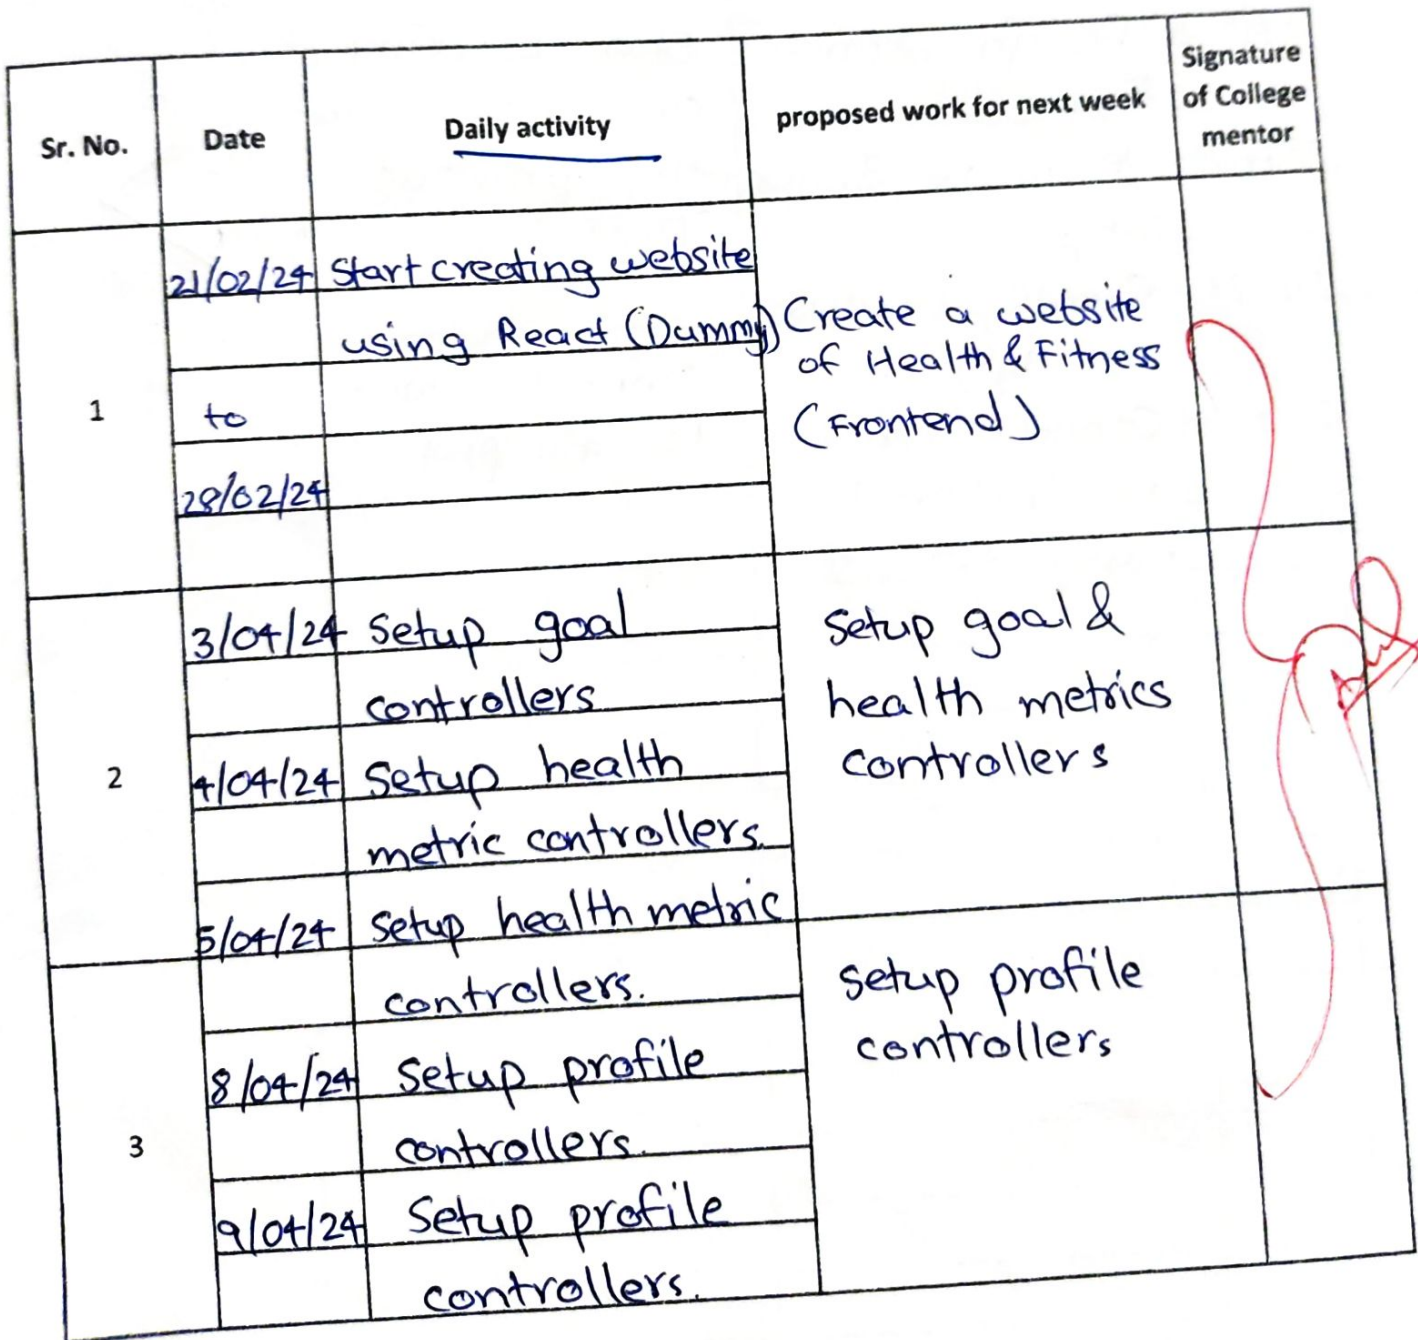 Sr. No. Date Daily activity proposed work for next week Signature
of College
mentor
1
21/02/24 Start creating website
using React (Dummy)
to
28/02/24
Create a website
of Health & Fitness
(Frontend)
2
3/04/24 Setup goal
controllers
4/04/24 Setup health
metric controllers.
5/04/24 Setup health metric
controllers.
Setup goal &
health metrics
controllers
3
8/04/24 Setup profile
controllers.
9/04/24 Setup profile
controllers.
Setup profile
controllers